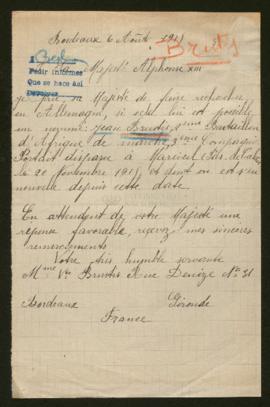 Bordeaux 6 Août 191
Bruts
Pedir informes
Que se hace así
Majesté Alphonse XIII
je prie sa Majesté de faire rechercher
en Allemagne, si cela lui est possible
un nommé Jean Brutus, 3ème Bataillon
d'Afrique de marche, 3ème Compagnie
Portant disparu à
le 20 Novembre 191 et dont on est sans
nouvelle depuis cette date.
En attendant de votre Majesté une
réponse favorable, recevez mes sincères
remerciements
Votre très humble servante
Mme Vve Brutus Rue N° 31
Bordeaux Gironde
France